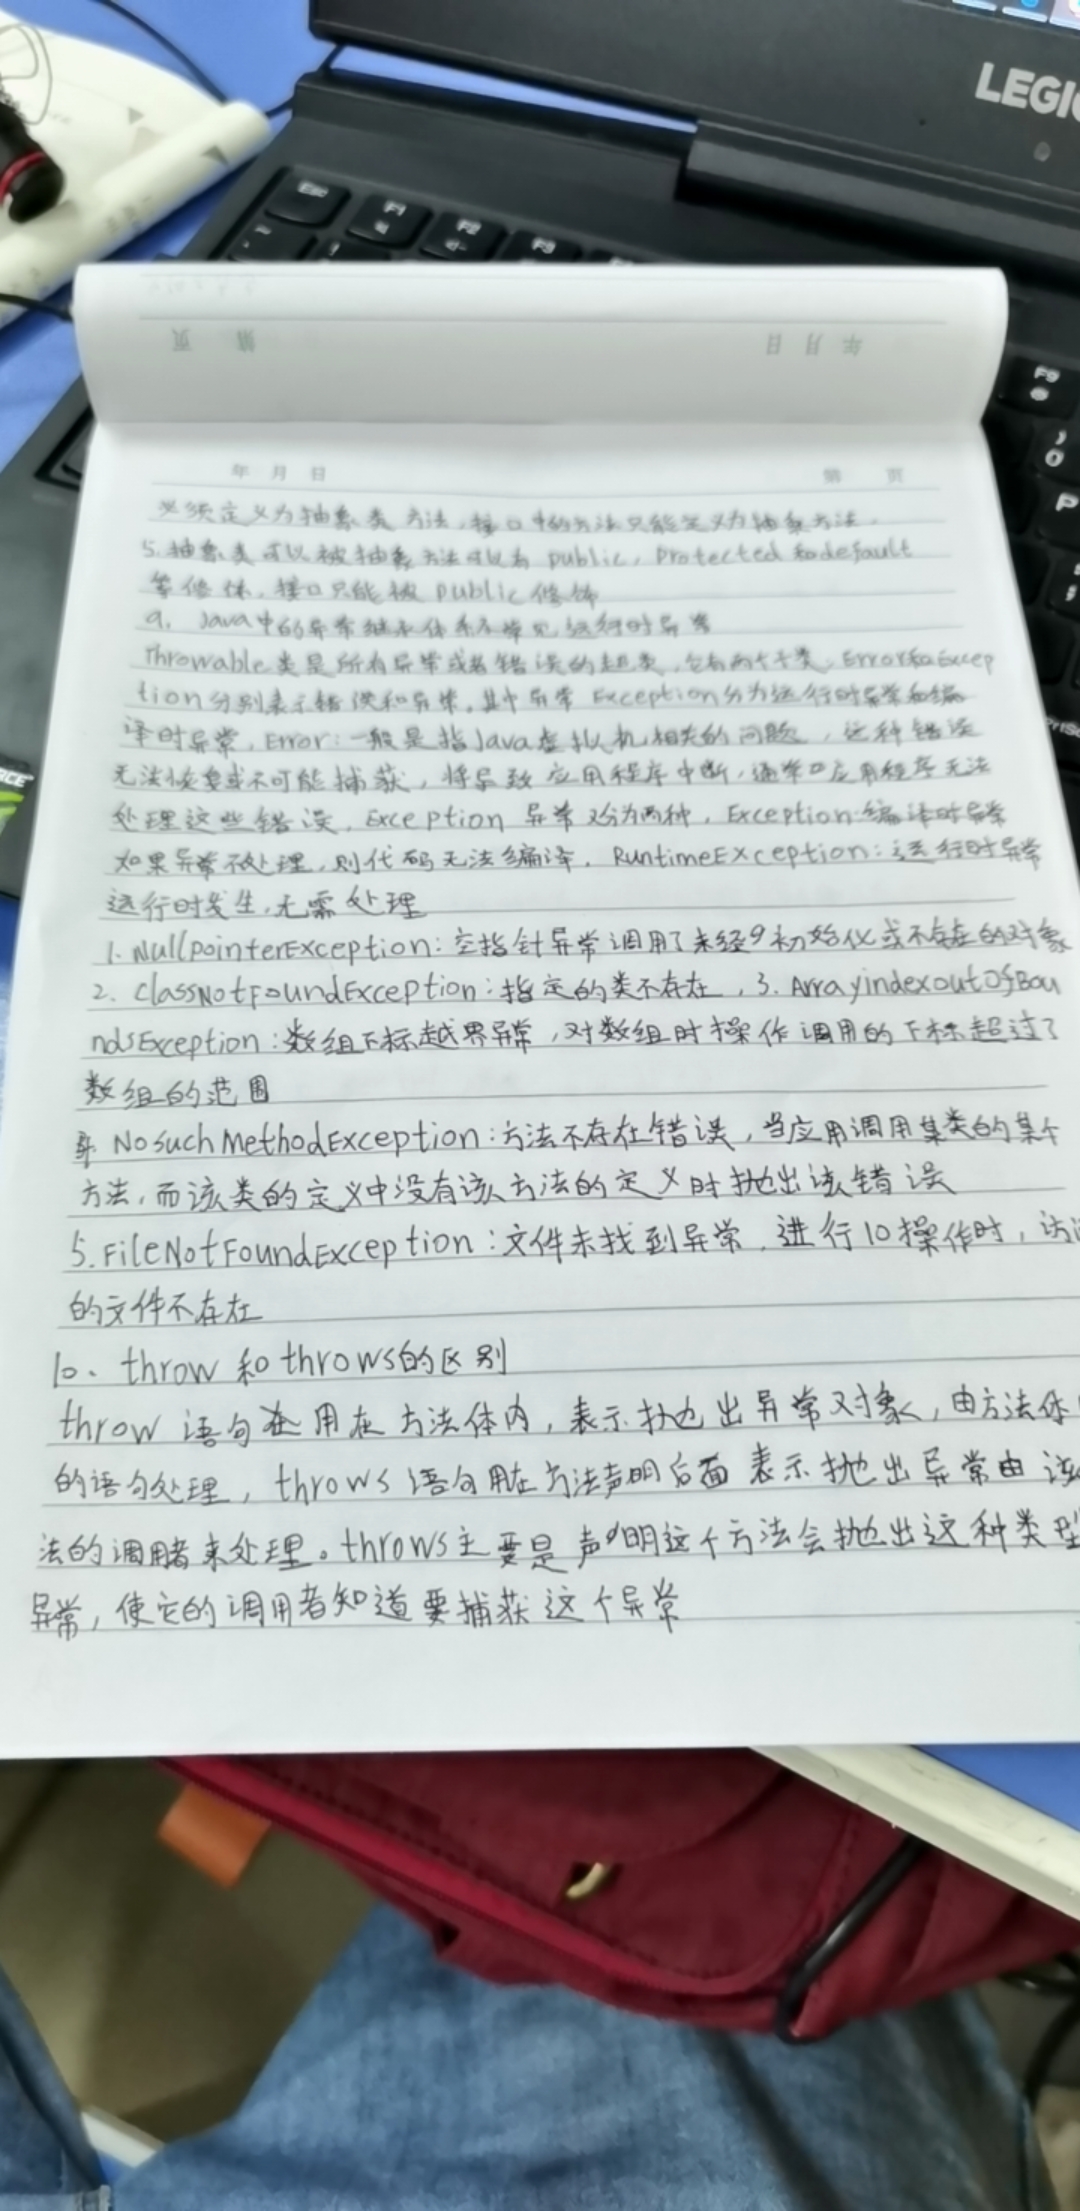 LEGIO
Esc
F1
F2
F3
F9
P
PrtSc
年 月 日
第 页
年 月 日 第 页
必须定义为抽象类方法,接口中的方法只能定义为抽象方法.
5.抽象类可以被抽象方法可以有 public, protected和default
等修饰,接口只能被 public 修饰
9. Java中的异常继承体系和常见运行时异常
Throwable类是所有异常或者错误的超类,它有两个子类,Error和Excep
tion分别表示错误和异常,其中异常 Exception分为运行时异常和编
译时异常, Error:一般是指Java虚拟机相关的问题,这种错误
无法恢复或不可能捕获,将导致应用程序中断,通常 应用程序无法
处理这些错误, Exception 异常又分为两种, Exception:编译时异常
如果异常不处理,则代码无法编译. RuntimeException:运行时异常
运行时发生,无需处理
1. NullpointerException:空指针异常调用了未经 初始化或不存在的对象
2. ClassNotFoundException:指定的类不存在,3. ArrayindexoutOfBou
ndsException:数组下标越界异常,对数组时操作调用的下标超过了
数组的范围
NosuchMethodException:方法不存在错误,当应用调用某类的某个
方法,而该类的定义中没有该方法的定义时抛出该错误
5. FileNotFoundException:文件未找到异常,进行IO操作时,访
的文件不存在
10、throw 和 throws的区别
throw 语句 用在方法体内,表示抛出异常对象,由方法体
的语句处理, throws 语句用在方法声明后面 表示抛出异常由该
法的调用者来处理。throws主要是声明这个方法会抛出这种类型
异常,使它的调用者知道要捕获这个异常